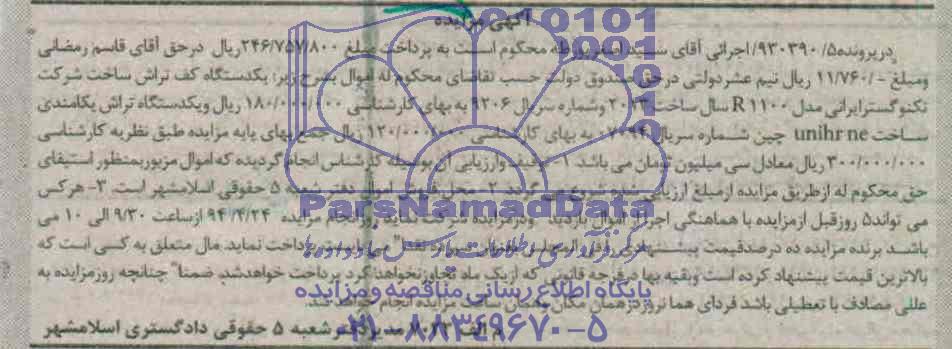 آگهی مزایده
درپرونده۹۳۰۳۹۰/۵/اجرائی آقای محکوم است به پرداخت مبلغ ۲۴۶/۷۵۷/۸۰۰ریال درحق آقای قاسم رمضانی
ومبلغ -/۱۱/۷۶۰ ریال نیم عشردولتی درحق صندوق دولت حسب تقاضای محکوم له اموال بشرح زیر: یکدستگاه کف تراش ساخت شرکت
تکنوگسترایرانی مدل R ۱۱۰۰ سال ساخت وشماره سریال ۹۲۰۶ به بهای کارشناسی ۱۸۰/۰۰۰/۰۰۰ ریال ویکدستگاه تراش یکامندی
ساخت unihrne چین شماره سریال به بهای کارشناسی ۱۲۰/۰۰۰/۰۰۰ ریال جمع بهای پایه مزایده طبق نظریه کارشناسی
۳۰۰/۰۰۰/۰۰۰ ریال معادل سی میلیون تومان می باشد ۱- توصیف وارزیابی آن بوسیله کارشناس انجام گردیده که اموال مزبوربمنظور استیفای
حق محکوم له ازطریق مزایده ازمبلغ ارزیابی شده شروع می گردد ۲- محل فروش اموال دفتر شعبه ۵ حقوقی اسلامشهر است ۳- هرکس
می تواند۵ روزقبل ازمزایده با هماهنگی اجرا اموال بازدید ودرمزایده شرکت نماید روز انجام مزایده ۹۴/۴/۲۴ ازساعت ۹/۳۰ الی ۱۰ می
باشد برنده مزایده ده درصدقیمت پیشنهادی پرداخت نماید مال متعلق به کسی است که
بالاترین قیمت پیشنهاد کرده است وبقیه بها درفرجه قانونی که ازیک ماه تجاوزنخواهد کرد پرداخت خواهدشد ضمنا" چنانچه روزمزایده به
عللی مصادف با تعطیلی باشد فردای همانروز درهمان مکان وهمان ساعت مزایده انجام خواهد شد
م الف مدیر دفتر شعبه ۵ حقوقی دادگستری اسلامشهر
ParsNamadData
پایگاه اطلاع رسانی مناقصه و مزایده
۰۲۱-۸۸۳۴۹۶۷۰-۵